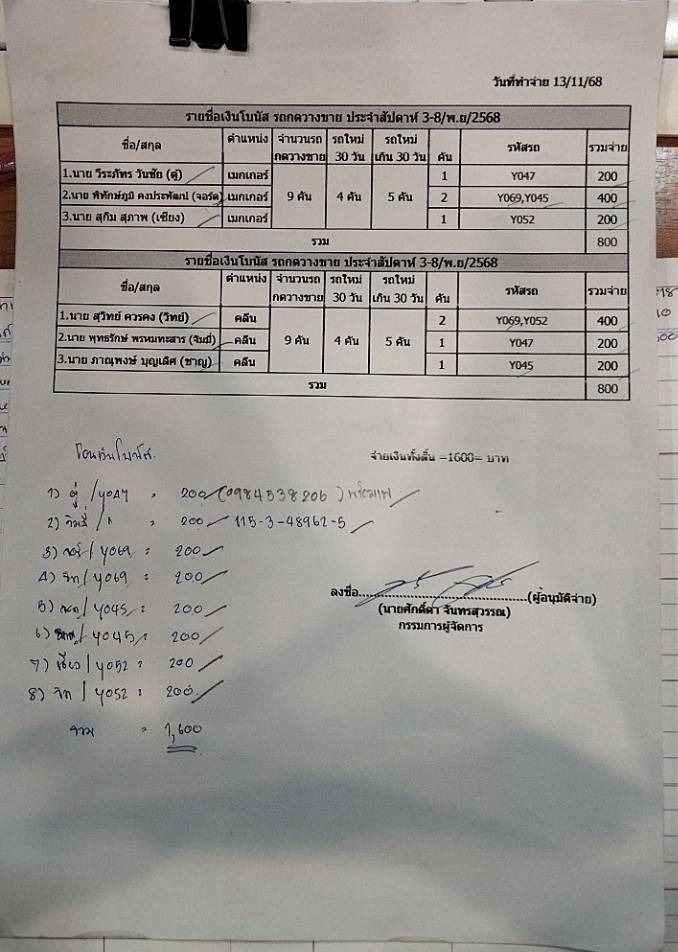 วันที่ทำจ่าย 13/11/68
รายชื่อเงินโบนัส รถกดวางขาย ประจำสัปดาห์ 3-8/พ.ย/2568
ชื่อ/สกุล ตำแหน่ง จำนวนรถกดวางขาย รถใหม่ 30 วัน รถใหม่เกิน 30 วัน คัน รหัสรถ รวมจ่าย
1.นาย วีระภัทร วันชัย (ตู่) เมกเกอร์ 9 คัน 4 คัน 5 คัน 1 Y047 200
2.นาย พิทักษ์ภูมิ คงประพัฒน์ (จอร์ด) เมกเกอร์ 2 Y069,Y045 400
3.นาย สุกิม สุภาพ (เซียง) เมกเกอร์ 1 Y052 200
รวม 800
รายชื่อเงินโบนัส รถกดวางขาย ประจำสัปดาห์ 3-8/พ.ย/2568
ชื่อ/สกุล ตำแหน่ง จำนวนรถกดวางขาย รถใหม่ 30 วัน รถใหม่เกิน 30 วัน คัน รหัสรถ รวมจ่าย
1.นาย สุวิทย์ ควรคง (วิทย์) คลีน 9 คัน 4 คัน 5 คัน 2 Y069,Y052 400
2.นาย พุทธรักษ์ พรหมทะสาร (จิมมี่) คลีน 1 Y047 200
3.นาย ภาณุพงษ์ บุญเลิศ (ชาญ) คลีน 1 Y045 200
รวม 800
จ่ายเงินทั้งสิ้น =1600= บาท
โอนเงินโบนัส
1) ตู่ / Y047 = 200 (0984538206)
2) จิมมี่ / = 200 115-3-48962-5
3) / Y069 = 200
4) / Y069 = 200
5) / Y045 = 200
6) / Y045 = 200
7) เซียง / Y052 = 200
8) / Y052 = 200
รวม = 1,600
ลงชื่อ (ผู้อนุมัติจ่าย)
(นายศักดิ์ดา จันทรสุวรรณ)
กรรมการผู้จัดการ